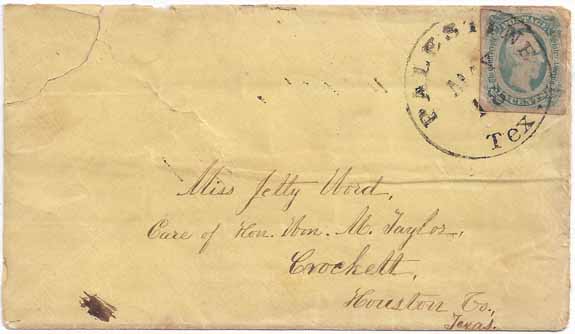 PALESTINE
Tex
POSTAGE
Miss Jetty Word,
Care of Hon. Wm. M. Taylor,
Crockett,
Houston Co.,
Texas.